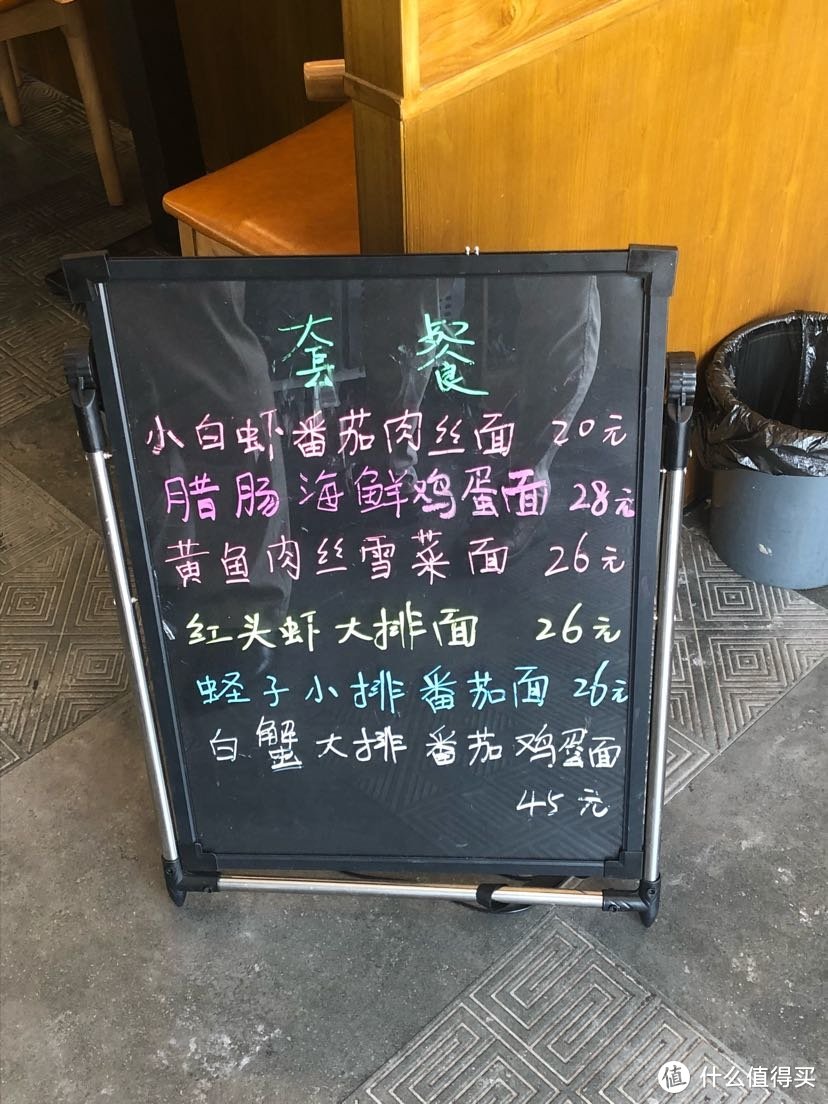 套 餐
小白虾番茄肉丝面 20元
腊肠海鲜鸡蛋面 28元
黄鱼肉丝雪菜面 26元
红头虾大排面 26元
蛏子小排番茄面 26元
白蟹大排番茄鸡蛋面
45元
值 什么值得买